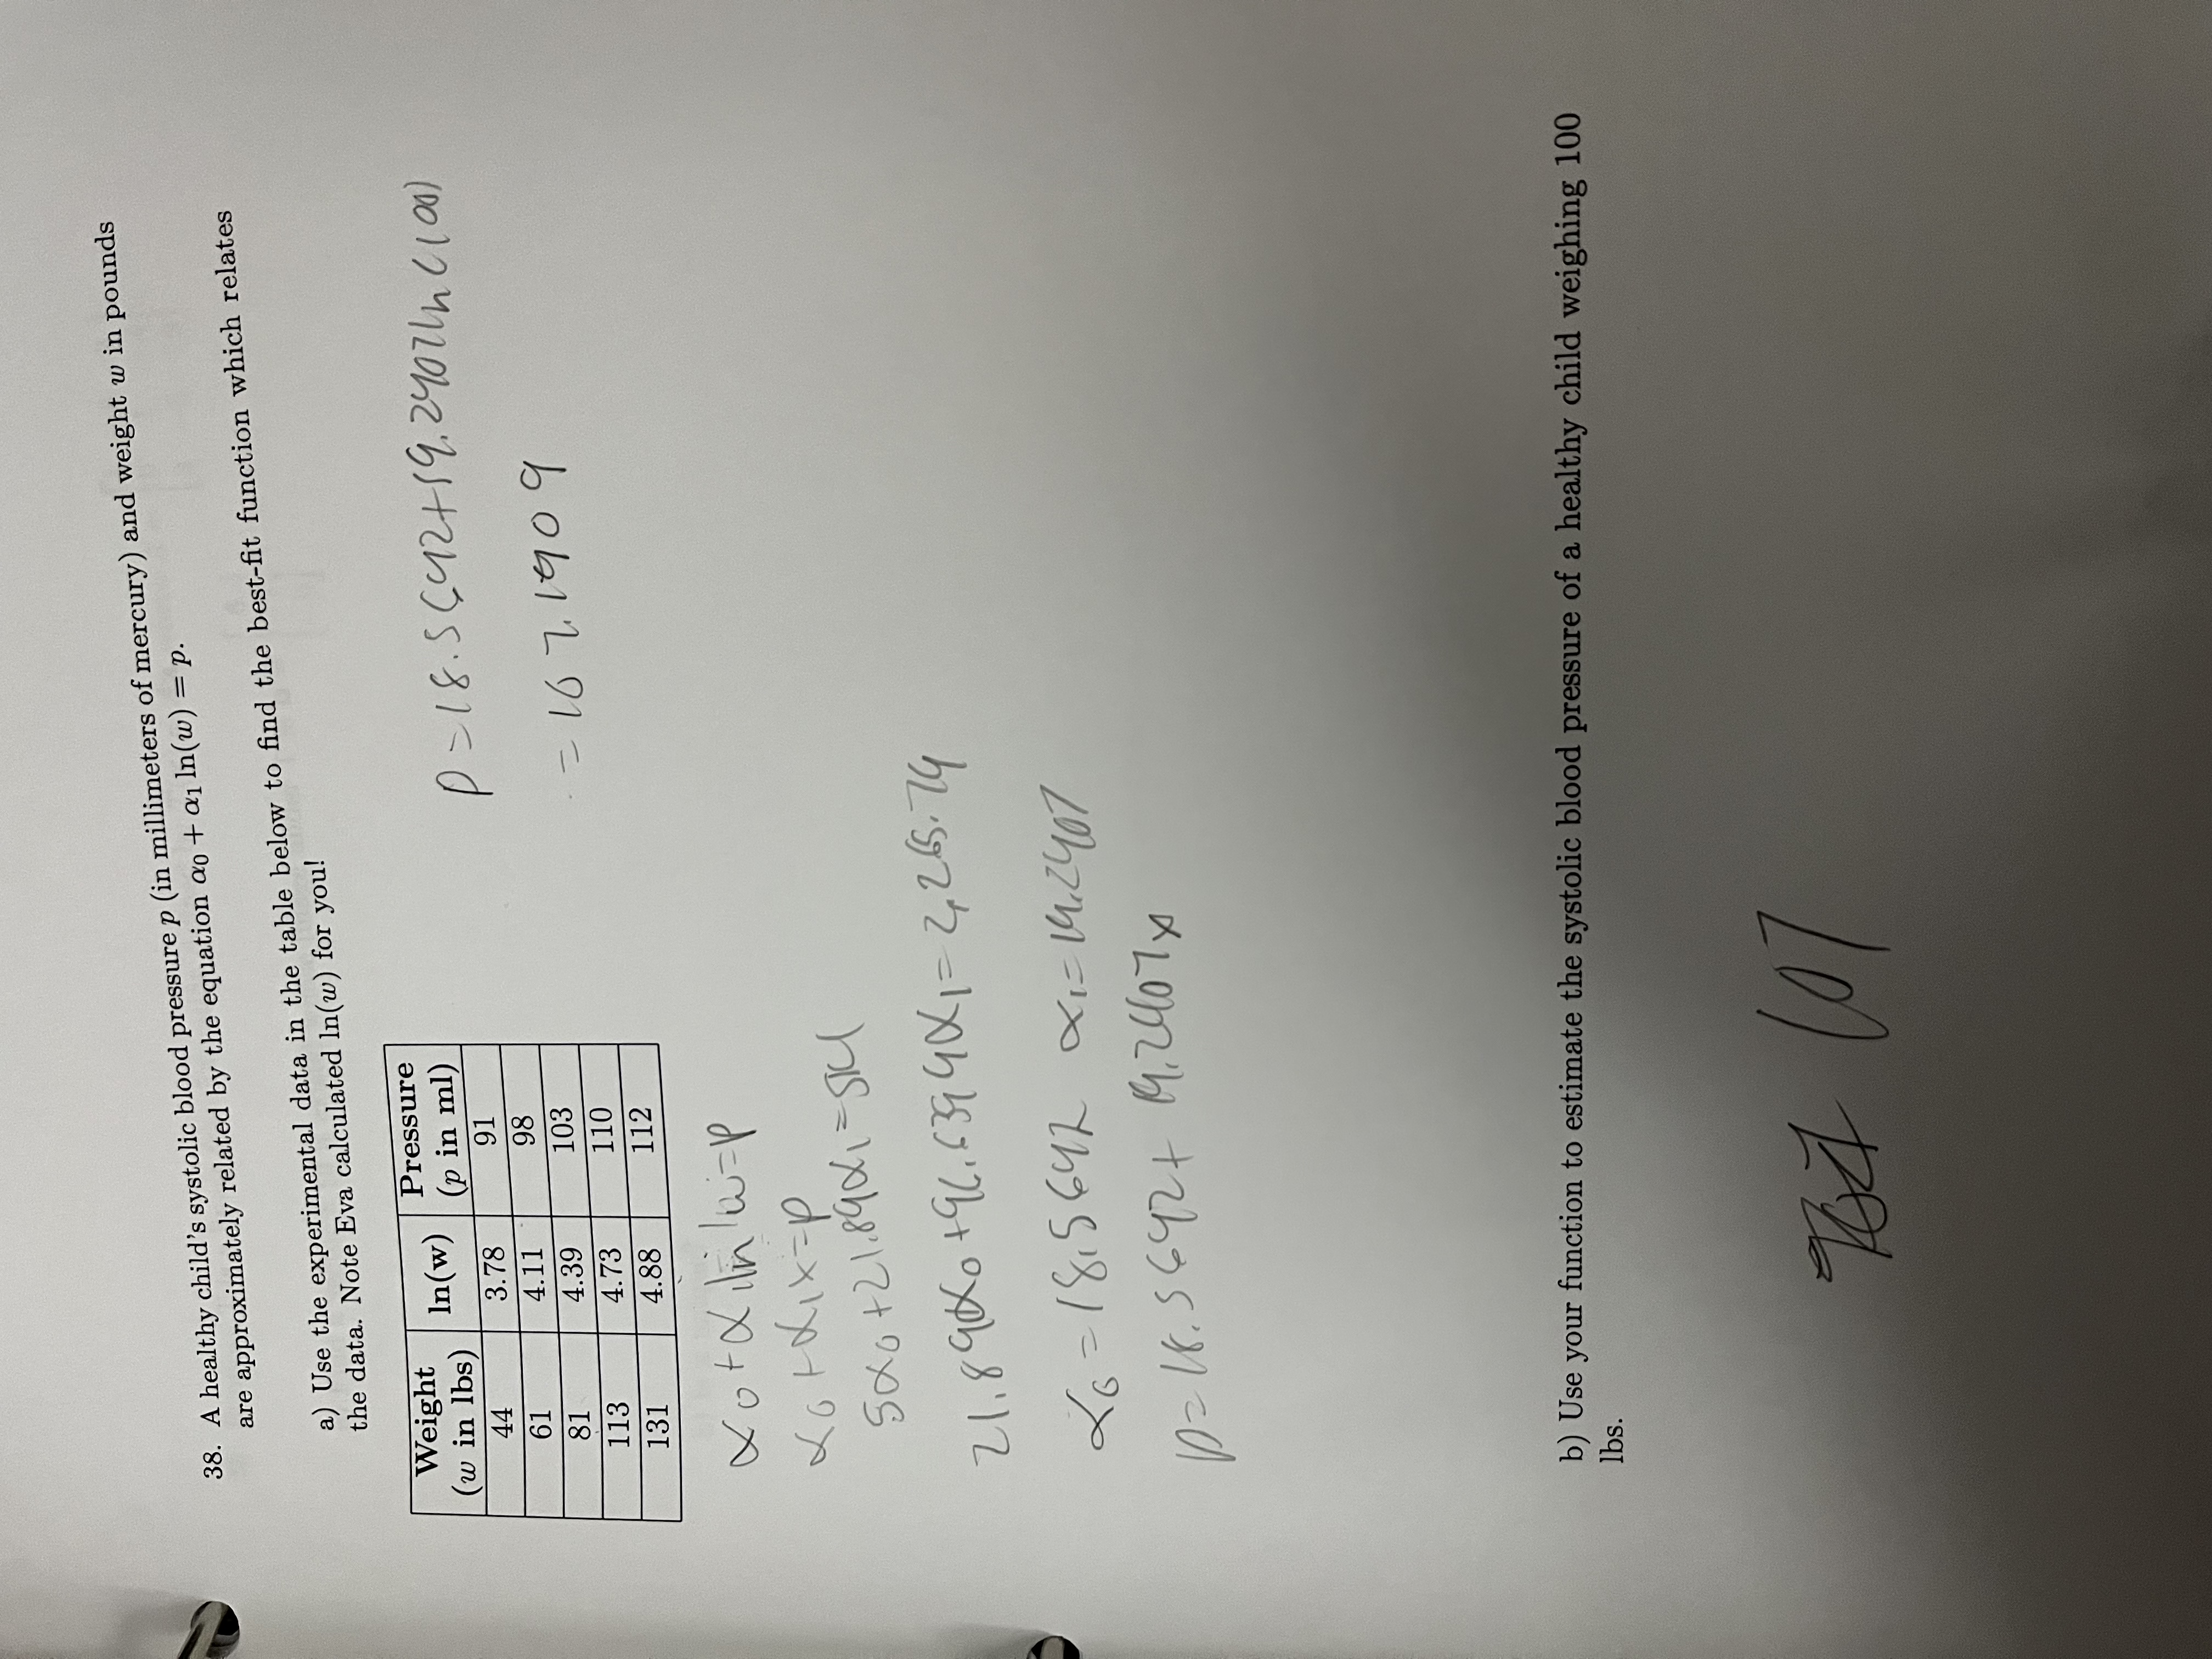 38. A healthy child's systolic blood pressure p (in millimeters of mercury) and weight w in pounds
are approximately related by the equation α₀ + α₁ ln(w) = p.
a) Use the experimental data in the table below to find the best-fit function which relates
the data. Note Eva calculated ln(w) for you!
Weight (w in lbs) | ln(w) | Pressure (p in ml)
44 | 3.78 | 91
61 | 4.11 | 98
81 | 4.39 | 103
113 | 4.73 | 110
131 | 4.88 | 112
p=18.5642+19.2407ln(100)
=107.1909
α₀+α₁ln w=p
α₀+α₁x=p
5α₀+21.89α₁=514
21.89α₀+96.6399α₁=2,265.79
α₀=18.5642 α₁=19.2407
p=18.5642+19.2407x
b) Use your function to estimate the systolic blood pressure of a healthy child weighing 100
lbs.
107